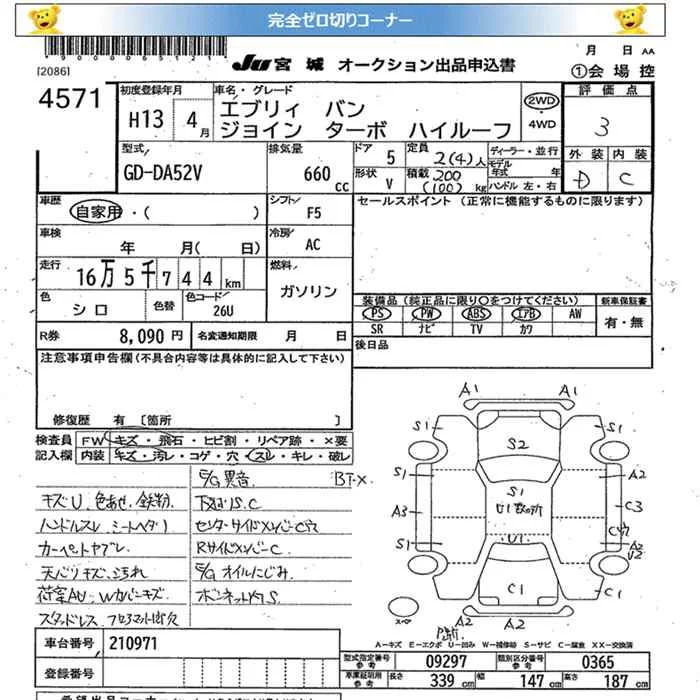 完全ゼロ切りコーナー
JU 宮城 オークション出品申込書
月 日 AA
[2086]
①会場控
4571
初度登録年月 車名・グレード
評価点
H13 4月
エブリィ バン
ジョイン ターボ ハイルーフ
2WD
・4WD
3
型式 排気量 ドア 定員 ディーラー・並行
外装 内装
GD-DA52V
660 cc
5
2(4)人
モデル年式 年
形状 V
積載 200 (100) kg
ハンドル 左・右
D C
車歴
自家用・( )
シフト F5
セールスポイント (正常に機能するものに限ります)
車検
年 月( 日)
冷房 AC
走行
16万5千744km
燃料
ガソリン
色 シロ
色替
色コード 26U
装備品(純正品に限り〇をつけてください)
新車保証書
PS PW ABS エアB AW
有・無
SR ナビ TV カワ
R券 8,090円
名変通知期限 月 日
後日品
注意事項申告欄(不具合内容等は具体的に記入して下さい)
修復歴 有 [箇所 ]
検査員 FW キズ・飛石・ヒビ割・リペア跡・×要
記入欄 内装 キズ・汚レ・コゲ・穴・スレ・キレ・破レ
E/G 異音 BT-X
キズU、色あせ、鉄粉
下廻りS.C
ハンドルスレ シートヘタリ
カーペットヤブレ
RサイドメンバーC
天バリキズ、汚れ
E/G オイルにじみ
A1 A1
S1 S1
S2
S1 A2
S1
A3 C3
U1
S1 A2
C1 C1
A2 A2
A-キズ E-エクボ U-凹み W-補修跡 S-サビ C-腐食 XX-交換済
車台番号 210971
登録番号
型式指定番号 参考 09297
類別区分番号 参考 0365
車庫証明用 参考 長さ 339 cm 幅 147 cm 高さ 187 cm